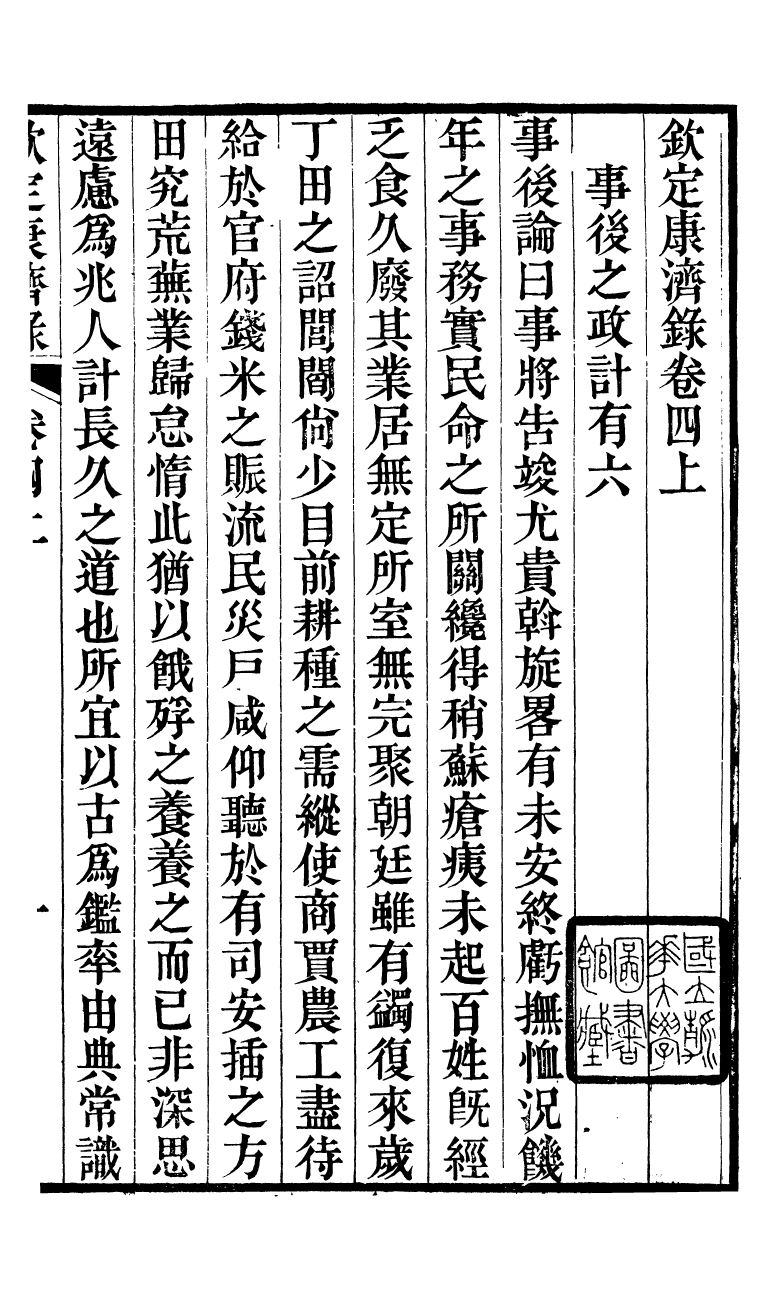 欽定康濟錄卷四上
事後之政計有六
事後論曰事將告竣尤貴斡旋畧有未安終虧撫恤況饑
年之事務實民命之所關纔得稍蘇瘡痍未起百姓旣經
乏食久廢其業居無定所室無完聚朝廷雖有蠲復來歲
丁田之詔閭閻尙少目前耕種之需縱使商賈農工盡待
給於官府錢米之賑流民災戶咸仰聽於有司安插之方
田究荒蕪業歸怠惰此猶以餓殍之養養之而已非深思
遠慮爲兆人計長久之道也所宜以古爲鑑率由典常識
欽定康濟錄 卷四上 一
國立
大學
圖書
館藏